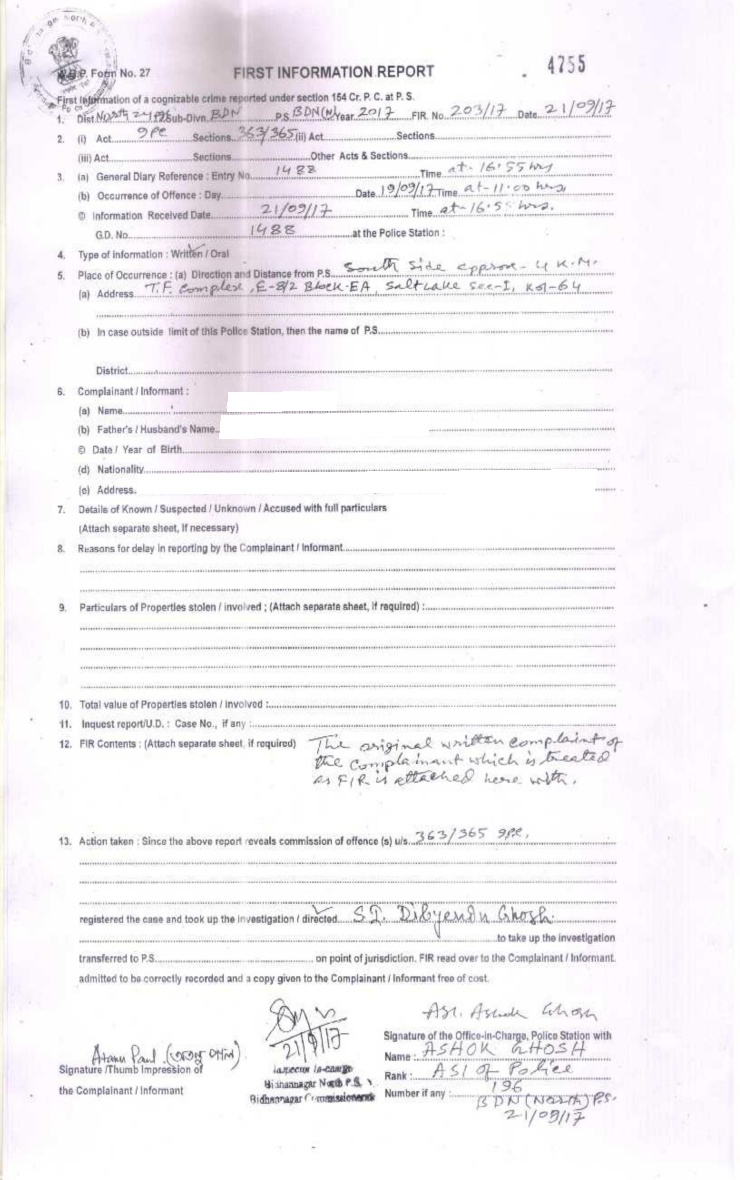 4755
W.B.P. Form No. 27
FIRST INFORMATION REPORT
First Information of a cognizable crime reported under section 154 Cr. P. C. at P. S.
1. Dist. North 24 Pgs Sub-Divn. BDN P.S. BDN(N) Year 2017 FIR No. 203/17 Date 21/09/17
2. (i) Act IPC Sections 363/365 (ii) Act Sections
(iii) Act Sections Other Acts & Sections
3. (a) General Diary Reference : Entry No. 1488 Time at- 16.55 hrs
(b) Occurrence of Offence : Day Date 19/09/17 Time at- 11.00 hrs,
© Information Received Date 21/09/17 Time at- 16.55 hrs.
G.D. No. 1488 at the Police Station :
4. Type of information : Written / Oral
5. Place of Occurrence : (a) Direction and Distance from P.S. South Side approx- 4 K.M.
(a) Address T.F. Complex, E-8/2 Block-EA, Saltlake Sec-I, Kol-64
(b) In case outside limit of this Police Station, then the name of P.S.
District
6. Complainant / Informant :
(a) Name
(b) Father's / Husband's Name
© Date / Year of Birth
(d) Nationality
(e) Address
7. Details of Known / Suspected / Unknown / Accused with full particulars
(Attach separate sheet, If necessary)
8. Reasons for delay in reporting by the Complainant / Informant
9. Particulars of Properties stolen / involved ; (Attach separate sheet, if required) :
10. Total value of Properties stolen / involved :
11. Inquest report/U.D. : Case No., if any :
12. FIR Contents : (Attach separate sheet, if required) The original written complaint of
the complainant which is treated
as FIR is attached here with.
13. Action taken : Since the above report reveals commission of offence (s) u/s. 363/365 IPC.
registered the case and took up the investigation / directed S.I. Dibyendu Ghosh.
to take up the investigation
transferred to P.S. on point of jurisdiction. FIR read over to the Complainant / Informant.
admitted to be correctly recorded and a copy given to the Complainant / Informant free of cost.
ASI. Ashok Ghosh
21/9/17
Signature of the Office-in-Charge, Police Station with
Atanu Paul
Name : ASHOK GHOSH
Signature /Thumb Impression of
Inspector In-charge
Rank : ASI of Police
the Complainant / Informant
Bidhannagar North P.S.
Number if any : 196
Bidhannagar Commissionerate
BDN (North) P.S.
21/09/17